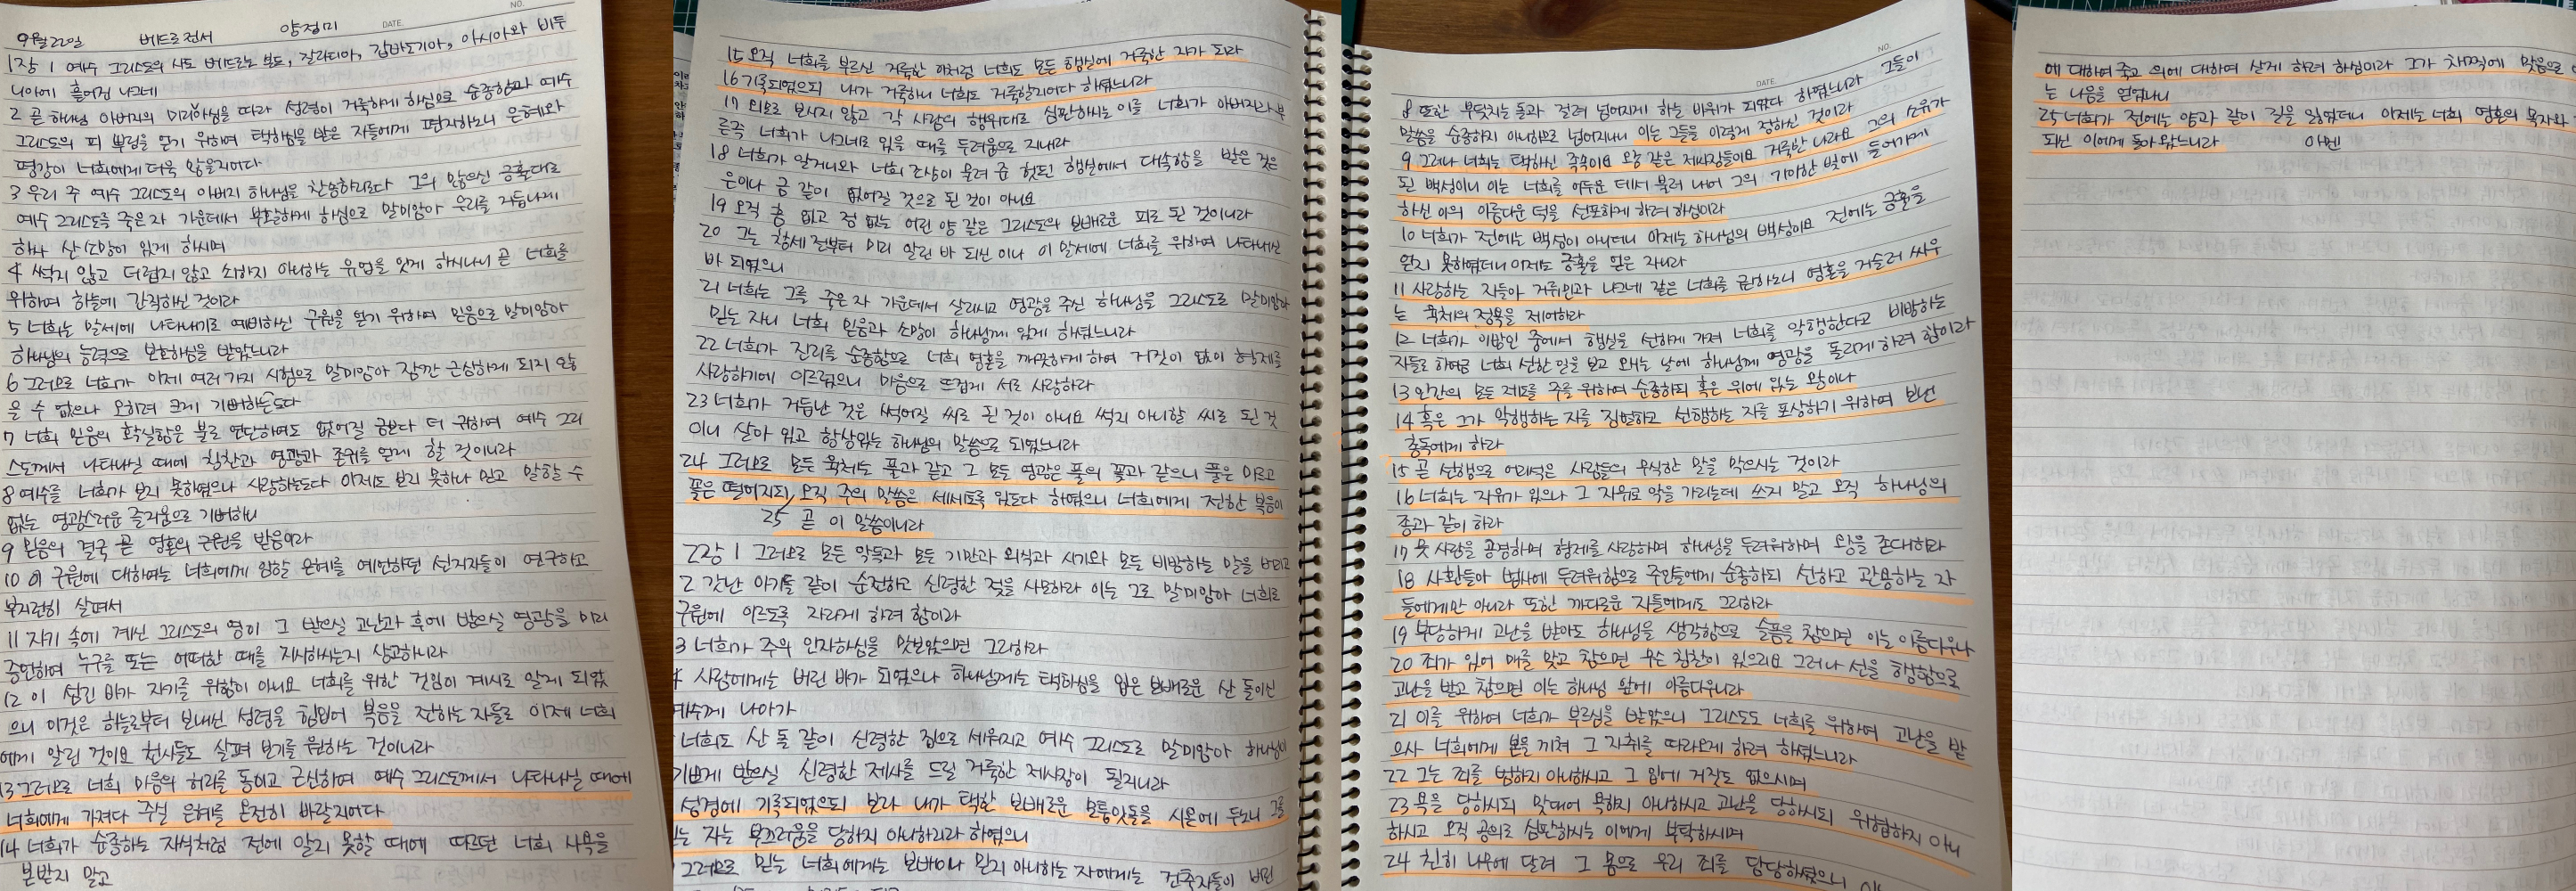 NO.
DATE.
9월22일 베드로전서 양정미
1장 1 예수 그리스도의 사도 베드로는 본도, 갈라디아, 갑바도기아, 아시아와 비두
니아에 흩어진 나그네
2 곧 하나님 아버지의 미리아심을 따라 성령이 거룩하게 하심으로 순종함과 예수
그리스도의 피 뿌림을 얻기 위하여 택하심을 받은 자들에게 편지하노니 은혜와
평강이 너희에게 더욱 많을지어다
3 우리 주 예수 그리스도의 아버지 하나님을 찬송하리로다 그의 많으신 긍휼대로
예수 그리스도를 죽은 자 가운데서 부활하게 하심으로 말미암아 우리를 거듭나게
하사 산 소망이 있게 하시며
4 썩지 않고 더럽지 않고 쇠하지 아니하는 유업을 잇게 하시나니 곧 너희를
위하여 하늘에 간직하신 것이라
5 너희는 말세에 나타내기로 예비하신 구원을 얻기 위하여 믿음으로 말미암아
하나님의 능력으로 보호하심을 받았느니라
6 그러므로 너희가 이제 여러 가지 시험으로 말미암아 잠깐 근심하게 되지 않을
을 수 없으나 오히려 크게 기뻐하는도다
7 너희 믿음의 확실함은 불로 연단하여도 없어질 금보다 더 귀하여 예수 그리
스도께서 나타나실 때에 칭찬과 영광과 존귀를 얻게 할 것이니라
8 예수를 너희가 보지 못하였으나 사랑하는도다 이제도 보지 못하나 믿고 말할 수
없는 영광스러운 즐거움으로 기뻐하니
9 믿음의 결국 곧 영혼의 구원을 받음이라
10 이 구원에 대하여는 너희에게 임할 은혜를 예언하던 선지자들이 연구하고
부지런히 살펴서
11 자기 속에 계신 그리스도의 영이 그 받으실 고난과 후에 받으실 영광을 미리
증언하여 누구를 또는 어떠한 때를 지시하시는지 상고하니라
12 이 섬긴 바가 자기를 위함이 아니요 너희를 위한 것임이 계시로 알게 되었
으니 이것은 하늘로부터 보내신 성령을 힘입어 복음을 전하는 자들로 이제 너희
에게 알린 것이요 천사들도 살펴 보기를 원하는 것이니라
13 그러므로 너희 마음의 허리를 동이고 근신하여 예수 그리스도께서 나타나실 때에
너희에게 가져다 주실 은혜를 온전히 바랄지어다
14 너희가 순종하는 자식처럼 전에 알지 못할 때에 따르던 너희 사욕을
본받지 말고
15 오직 너희를 부르신 거룩한 이처럼 너희도 모든 행실에 거룩한 자가 되라
16 기록되었으되 내가 거룩하니 너희도 거룩할지어다 하셨느니라
17 외모로 보시지 않고 각 사람의 행위대로 심판하시는 이를 너희가 아버지라 부
른즉 너희가 나그네로 있을 때를 두려움으로 지내라
18 너희가 알거니와 너희 조상이 물려 준 헛된 행실에서 대속함을 받은 것은
은이나 금 같이 없어질 것으로 된 것이 아니요
19 오직 흠 없고 점 없는 어린 양 같은 그리스도의 보배로운 피로 된 것이니라
20 그는 창세 전부터 미리 알린 바 되신 이나 이 말세에 너희를 위하여 나타내신
바 되었으니
21 너희는 그를 죽은 자 가운데서 살리시고 영광을 주신 하나님을 그리스도로 말미암아
믿는 자니 너희 믿음과 소망이 하나님께 있게 하셨느니라
22 너희가 진리를 순종함으로 너희 영혼을 깨끗하게 하여 거짓이 없이 형제를
사랑하기에 이르렀으니 마음으로 뜨겁게 서로 사랑하라
23 너희가 거듭난 것은 썩어질 씨로 된 것이 아니요 썩지 아니할 씨로 된 것
이니 살아 있고 항상있는 하나님의 말씀으로 되었느니라
24 그러므로 모든 육체는 풀과 같고 그 모든 영광은 풀의 꽃과 같으니 풀은 마르고
꽃은 떨어지되, 오직 주의 말씀은 세세토록 있도다 하였으니 너희에게 전한 복음이
25 곧 이 말씀이니라
2장 1 그러므로 모든 악독과 모든 기만과 외식과 시기와 모든 비방하는 말을 버리고
2 갓난 아기들 같이 순전하고 신령한 젖을 사모하라 이는 그로 말미암아 너희로
구원에 이르도록 자라게 하려 함이라
3 너희가 주의 인자하심을 맛보았으면 그리하라
4 사람에게는 버린 바가 되었으나 하나님께는 택하심을 입은 보배로운 산 돌이신
예수께 나아가
너희도 산 돌 같이 신령한 집으로 세워지고 예수 그리스도로 말미암아 하나님이
기쁘게 받으실 신령한 제사를 드릴 거룩한 제사장이 될지니라
성경에 기록되었으되 보라 내가 택한 보배로운 모퉁잇돌을 시온에 두노니 그를
는 자는 부끄러움을 당하지 아니하리라 하였으니
그러므로 믿는 너희에게는 보배이나 믿지 아니하는 자에게는 건축자들이 버린
NO.
DATE.
8 또한 부딪치는 돌과 걸려 넘어지게 하는 바위가 되었다 하였느니라 그들이
말씀을 순종하지 아니하므로 넘어지나니 이는 그들을 이렇게 정하신 것이라
9 그러나 너희는 택하신 족속이요 왕 같은 제사장들이요 거룩한 나라요 그의 소유가
된 백성이니 이는 너희를 어두운 데서 불러 내어 그의 기이한 빛에 들어가게
하신 이의 아름다운 덕을 선포하게 하려 하심이라
10 너희가 전에는 백성이 아니더니 이제는 하나님의 백성이요 전에는 긍휼을
얻지 못하였더니 이제는 긍휼을 얻은 자니라
11 사랑하는 자들아 거류민과 나그네 같은 너희를 권하노니 영혼을 거슬러 싸우
는 육체의 정욕을 제어하라
12 너희가 이방인 중에서 행실을 선하게 가져 너희를 악행한다고 비방하는
자들로 하여금 너희 선한 일을 보고 오시는 날에 하나님께 영광을 돌리게 하려 함이라
13 인간의 모든 제도를 주를 위하여 순종하되 혹은 위에 있는 왕이나
14 혹은 그가 악행하는 자를 징벌하고 선행하는 자를 포상하기 위하여 보낸
총독에게 하라
15 곧 선행으로 어리석은 사람들의 무식한 말을 막으시는 것이라
16 너희는 자유가 있으나 그 자유로 악을 가리는데 쓰지 말고 오직 하나님의
종과 같이 하라
17 뭇 사람을 공경하며 형제를 사랑하며 하나님을 두려워하며 왕을 존대하라
18 사환들아 범사에 두려워함으로 주인들에게 순종하되 선하고 관용하는 자
들에게만 아니라 또한 까다로운 자들에게도 그리하라
19 부당하게 고난을 받아도 하나님을 생각함으로 슬픔을 참으면 이는 아름다우나
20 죄가 있어 매를 맞고 참으면 무슨 칭찬이 있으리요 그러나 선을 행함으로
고난을 받고 참으면 이는 하나님 앞에 아름다우니라
21 이를 위하여 너희가 부르심을 받았으니 그리스도도 너희를 위하여 고난을 받
으사 너희에게 본을 끼쳐 그 자취를 따라오게 하려 하셨느니라
22 그는 죄를 범하지 아니하시고 그 입에 거짓도 없으시며
23 욕을 당하시되 맞대어 욕하지 아니하시고 고난을 당하시되 위협하지 아니
하시고 오직 공의로 심판하시는 이에게 부탁하시며
24 친히 나무에 달려 그 몸으로 우리 죄를 담당하셨으니
에 대하여 죽고 의에 대하여 살게 하려 하심이라 그가 채찍에 맞음으로
는 나음을 얻었나니
25 너희가 전에는 양과 같이 길을 잃었더니 이제는 너희 영혼의 목자와
되신 이에게 돌아왔느니라 아멘